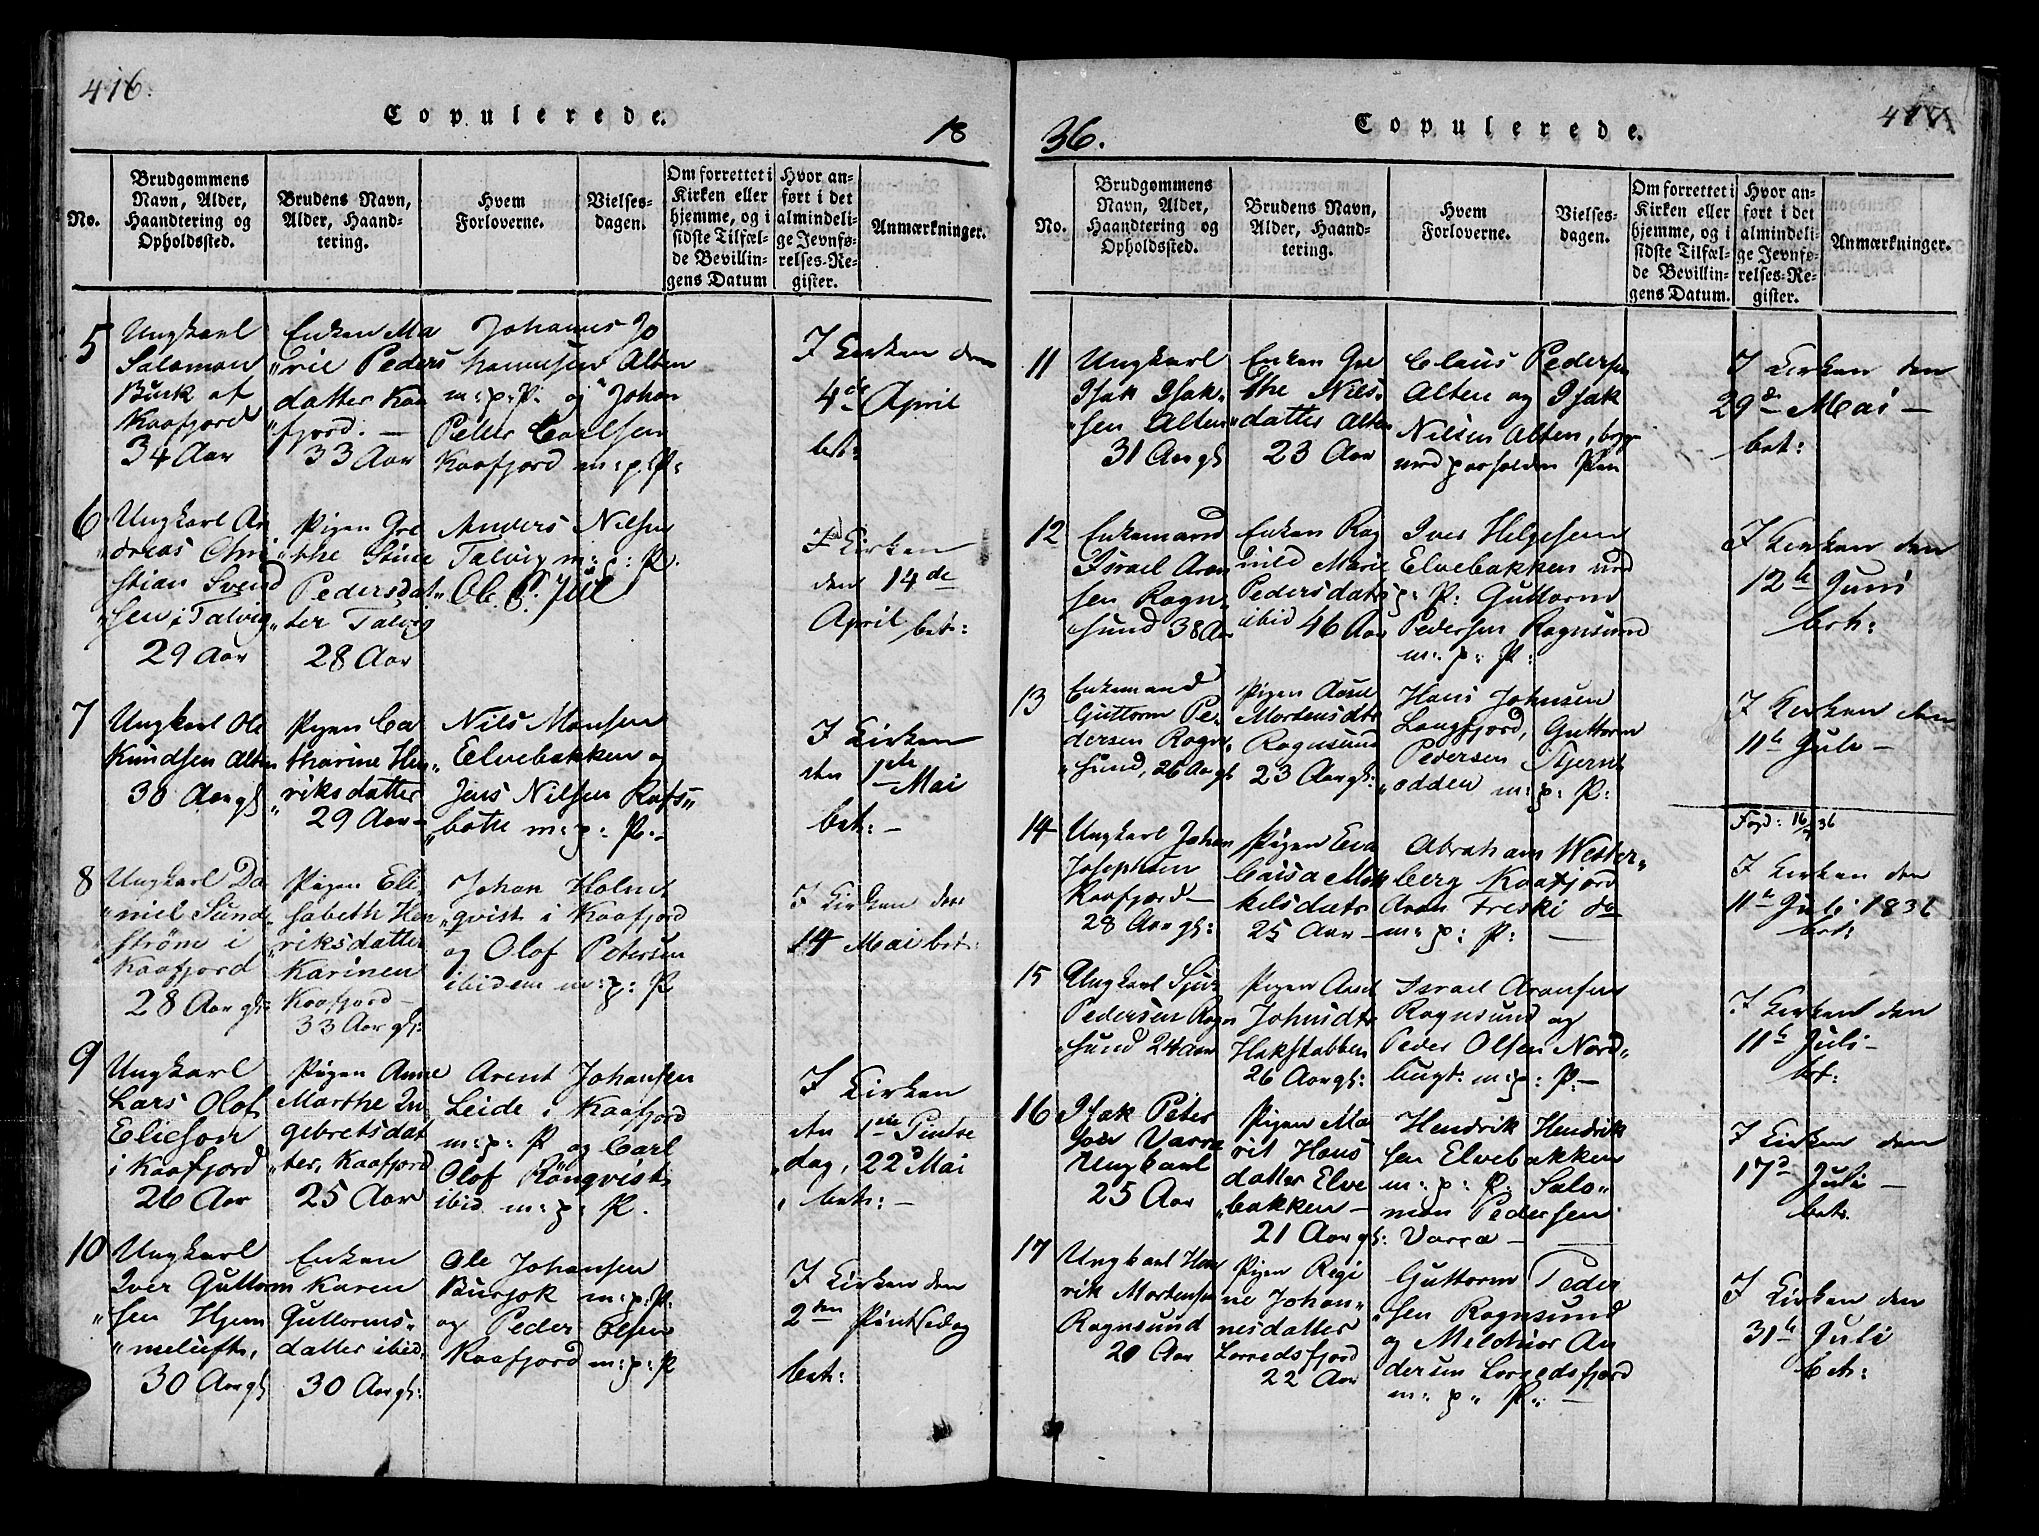 416.
Copulerede.
18
No.
Brudgommens
Navn, Alder,
Haandtering og
Opholdssted.
Brudens Navn,
Alder, Haand-
tering.
Hvem
Forloverne.
Vielses-
dagen.
Om forrettet i
Kirken eller
hjemme, og i
sidste Tilfæl-
de Bevillin-
gens Datum
Hvor an-
ført i det
almindeli-
ge Jevnfø-
relses-Re-
gister.
Anmærkninger.
5
Ungkarl
Salomon
Buck af
Kaafjord
34 Aar
Enken Ma
"rie Peders
datter Kaa
"fjord. —
33 Aar
Johannes Jo
hannesen Alten
m:p:P: og Johan
Peter Carlsen
Kaafjord m:p:P:
I Kirken den
4de April
bet:
6
Ungkarl An
"dreas Chri
stian Svend
"sen i Talvig
29 Aar
Pigen Gre
"the Stine
Pedersdat
"ter Talvig
28 Aar
Anders Nilsen
Talvig m:p:P.
Ole P. Jiil
I Kirken
den 14de
April bet:
7
Ungkarl Ole
Knudsen Alten
30 Aar gl:
Pigen Ca
tharine Hen
"riksdatter
29 Aar —
Nils Monsen
Elvebakken og
Jens Nilsen Rafs"
"botn m:p:P: —
I Kirken
den 1ste
Mai
bet: —
8
Ungkarl Da
"niel Sund
strøm i
Kaafjord
28 Aar gl:
Pigen Eli
"sabeth Hen
riksdatter
Karinen
Kaafjord —
33 Aar gl:
Johan Holm
"qvist i Kaafjord
og Olof Petersen
ibidem m:p:P
I Kirken den
14 Mai bet:
9
Ungkarl
Lars Olof
Ericson
i Kaafjord
26 Aar
Pigen Anne
Marthe In
gebretsdat
"ter, Kaafjord
25 Aar
Arent Johansen
Leide i Kaafjord
m:p:P og Carl
Olof Rönqvist
ibid m:p:P.
I Kirken
den 1ste Pintse
"dag, 22d Mai
bet: —
10
Ungkarl
Iver Guttorm
"sen Hjem
"meluft,
30 Aar gl
Enken
Karen
Guttorms"
datter ibid.
30 Aar gl:
Ole Johansen
Bursjok m:p:P:
og Peder Olsen
Kaafjord m:p:P
I Kirken den
2den Pintsedag
bet:
36.
Copulerede.
417.
No.
Brudgommens
Navn, Alder,
Haandtering og
Opholdssted.
Brudens Navn,
Alder, Haand-
tering.
Hvem
Forloverne.
Vielses-
dagen.
Om forrettet i
Kirken eller
hjemme, og i
sidste Tilfæl-
de Bevillin-
gens Datum.
Hvor an-
ført i det
almindeli-
ge Jevnfø-
relses-Re-
gister.
Anmærkninger.
11
Ungkarl
Isak Isak-
"sen Alten
31 Aar gl
Enken Gre
the Nils-
"datter Alten
23 Aar
Claus Pedersen
Alten og Isak
Nilsen Alten, begge
med paaholden Pen
I Kirken den
29de Mai —
bet:
12
Enkemand
Israel Aron
sen Rogn"
"sund 38 Aar
Enken Rag
nild Marie
Pedersdatr
ibid 46 Aar
Iver Helgesen
Elvebakken med
p: P: Guttorm
Pedersen Rognsund
m: p: P:
I Kirken den
12te Juni
bet:
13
Enkemand
Guttorm Pe
dersen Rogn"
"sund, 26 Aar gl
Pigen Anne
Mortensdtr
Rognsund
23 Aar gl:
Hans Johnsen
Langfjord, Guttorm
Pedersen Stjern
"odden m:p:P:
I Kirken den
11te Juli —
14
Ungkarl Johan
Josephsen
Kaafjord —
28 Aar gl:
Pigen Eva
Caisa Mik
kelsdatr
25 Aar —
Abraham Wester"
berg Kaafjord
Aron Freski do
m:p:P: —
16/7 36
I Kirken den
11te Juli 1836
bet:
15
Ungkarl Sjur
Pedersen Rogn
"sund 24 Aar
Pigen Anne
Johnsdtr
Hakstabben
26 Aar gl:
Israel Aronsen
Rognsund og
Peder Olsen Nord"
bugt: m:p:P: —
I Kirken den
11te Juli —
bet:
16
Isak Peter
sen Varra
Ungkarl
25 Aar
Pigen Ma
rit Hans
datter Elve
"bakken —
21 Aar gl:
Hendrik Hendrik
sen Elvebakken
m:p:P: Salo"
mon Pedersen
Varra —
I Kirken den
17de Juli —
bet.
17
Ungkarl Hen
rik Mortensen
Rognsund
20 Aar
Pigen Regi
ne Johan"
nesdatter
Lerredsfjord
22 Aar
Guttorm Peder
"sen Rognsund
og Melchior An
dersen Lerredsfjord
m: p" P: —
I Kirken den
31te Juli
bet: